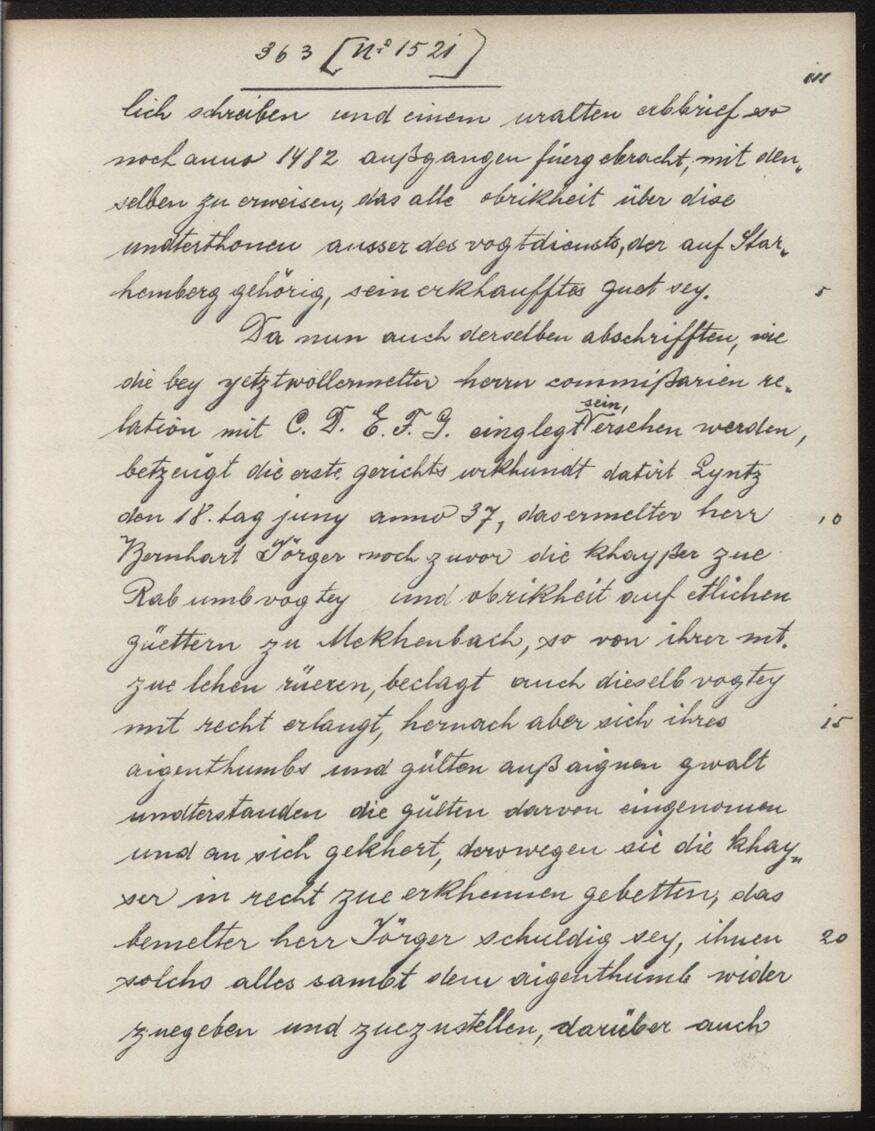 363 [No 1521]
III
lich schreiben und einem uralten erbbrief so
noch anno 1482 außgangen füergebracht, mit den„
selben zu erweisen, das alle obrikheit über dise
undterthonen ausser des vogtdiensts, der auf Star„
hemberg gehörig, sein erkhaufftes guet sey. 5
Da nun auch derselben abschrifften, wie
die bey yetztwollermelter herrn commißarien re„
lation mit C. D. E. F. G. einglegt sein, versehen werden,
betzeugt die erste gerichts urkhundt datirt Lyntz
den 18. tag juny anno 37, das ermelter herr 10
Bernhart Jörger noch zuvor die khayßer zue
Rab umb vogtey und obrikheit auf etlichen
güettern zu Mekhenbach, so von ihrer mt.
zue lehen rüeren, beclagt auch dieselb vogtey
mit recht erlangt, hernach aber sich ihres 15
aigenthumbs und gülten auß aignen gwalt
undterstanden die gülten darvon eingenomen
und an sich gekhert, derowegen sie die khay„
ser in recht zue erkhennen gebetten, das
bemelter herr Jörger schuldig sey, ihnen 20
solchs alles sambt dem aigenthumb wider
zuegeben und zuezustellen, darüber auch